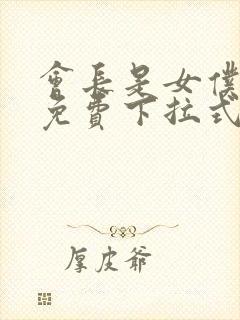 會長是女僕
免費下拉式
厚皮爺